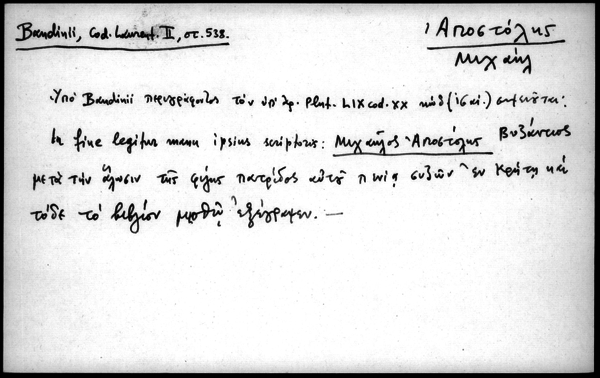 Bandinii, Cod. Laurent. II, στ. 538.
Ἀποστόλης
Μιχαήλ
Ὑπὸ Bandinii περιγράφοντος τὸν ὑπ' ἀρ. Plut. LIX cod. XX κώδ (ις αἰ.) σημειοῦται:
In fine legitur manu ipsius scriptoris: Μιχαῆλος Ἀποστόλης Βυζάντιος
μετὰ τὴν ἅλωσιν τῆς φίλης πατρίδος αὐτοῦ πενίᾳ συζῶν ἐν Κρήτῃ καὶ
τόδε τὸ βιβλίον μισθῷ ἐξέγραψεν. —